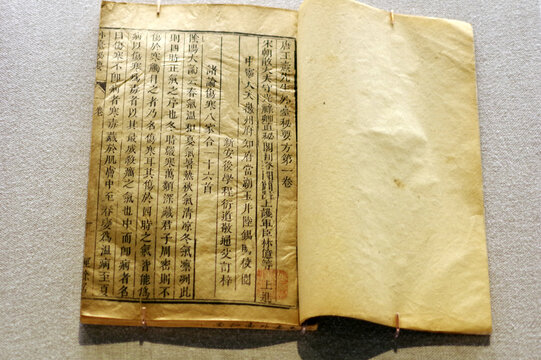 唐王燾先生外臺秘要方第一卷
宋朝散大夫守光祿卿直秘閣判登聞檢院上護軍臣林億等 上進
新安後學程衍道敬通父訂梓
諸論傷寒八家合一十六首
陰陽大論云春氣溫和夏氣暑熱秋氣清涼冬氣凛冽此
則四時正氣之序也冬時嚴寒萬類深藏君子周密則不
傷於寒觸冒之者乃名傷寒耳其傷於四時之氣皆能為
病以傷寒為毒者以其最成殺癘之氣也中而即病者名
曰傷寒不即病者寒毒藏於肌膚中至春變為溫病至夏
外臺秘要 卷一